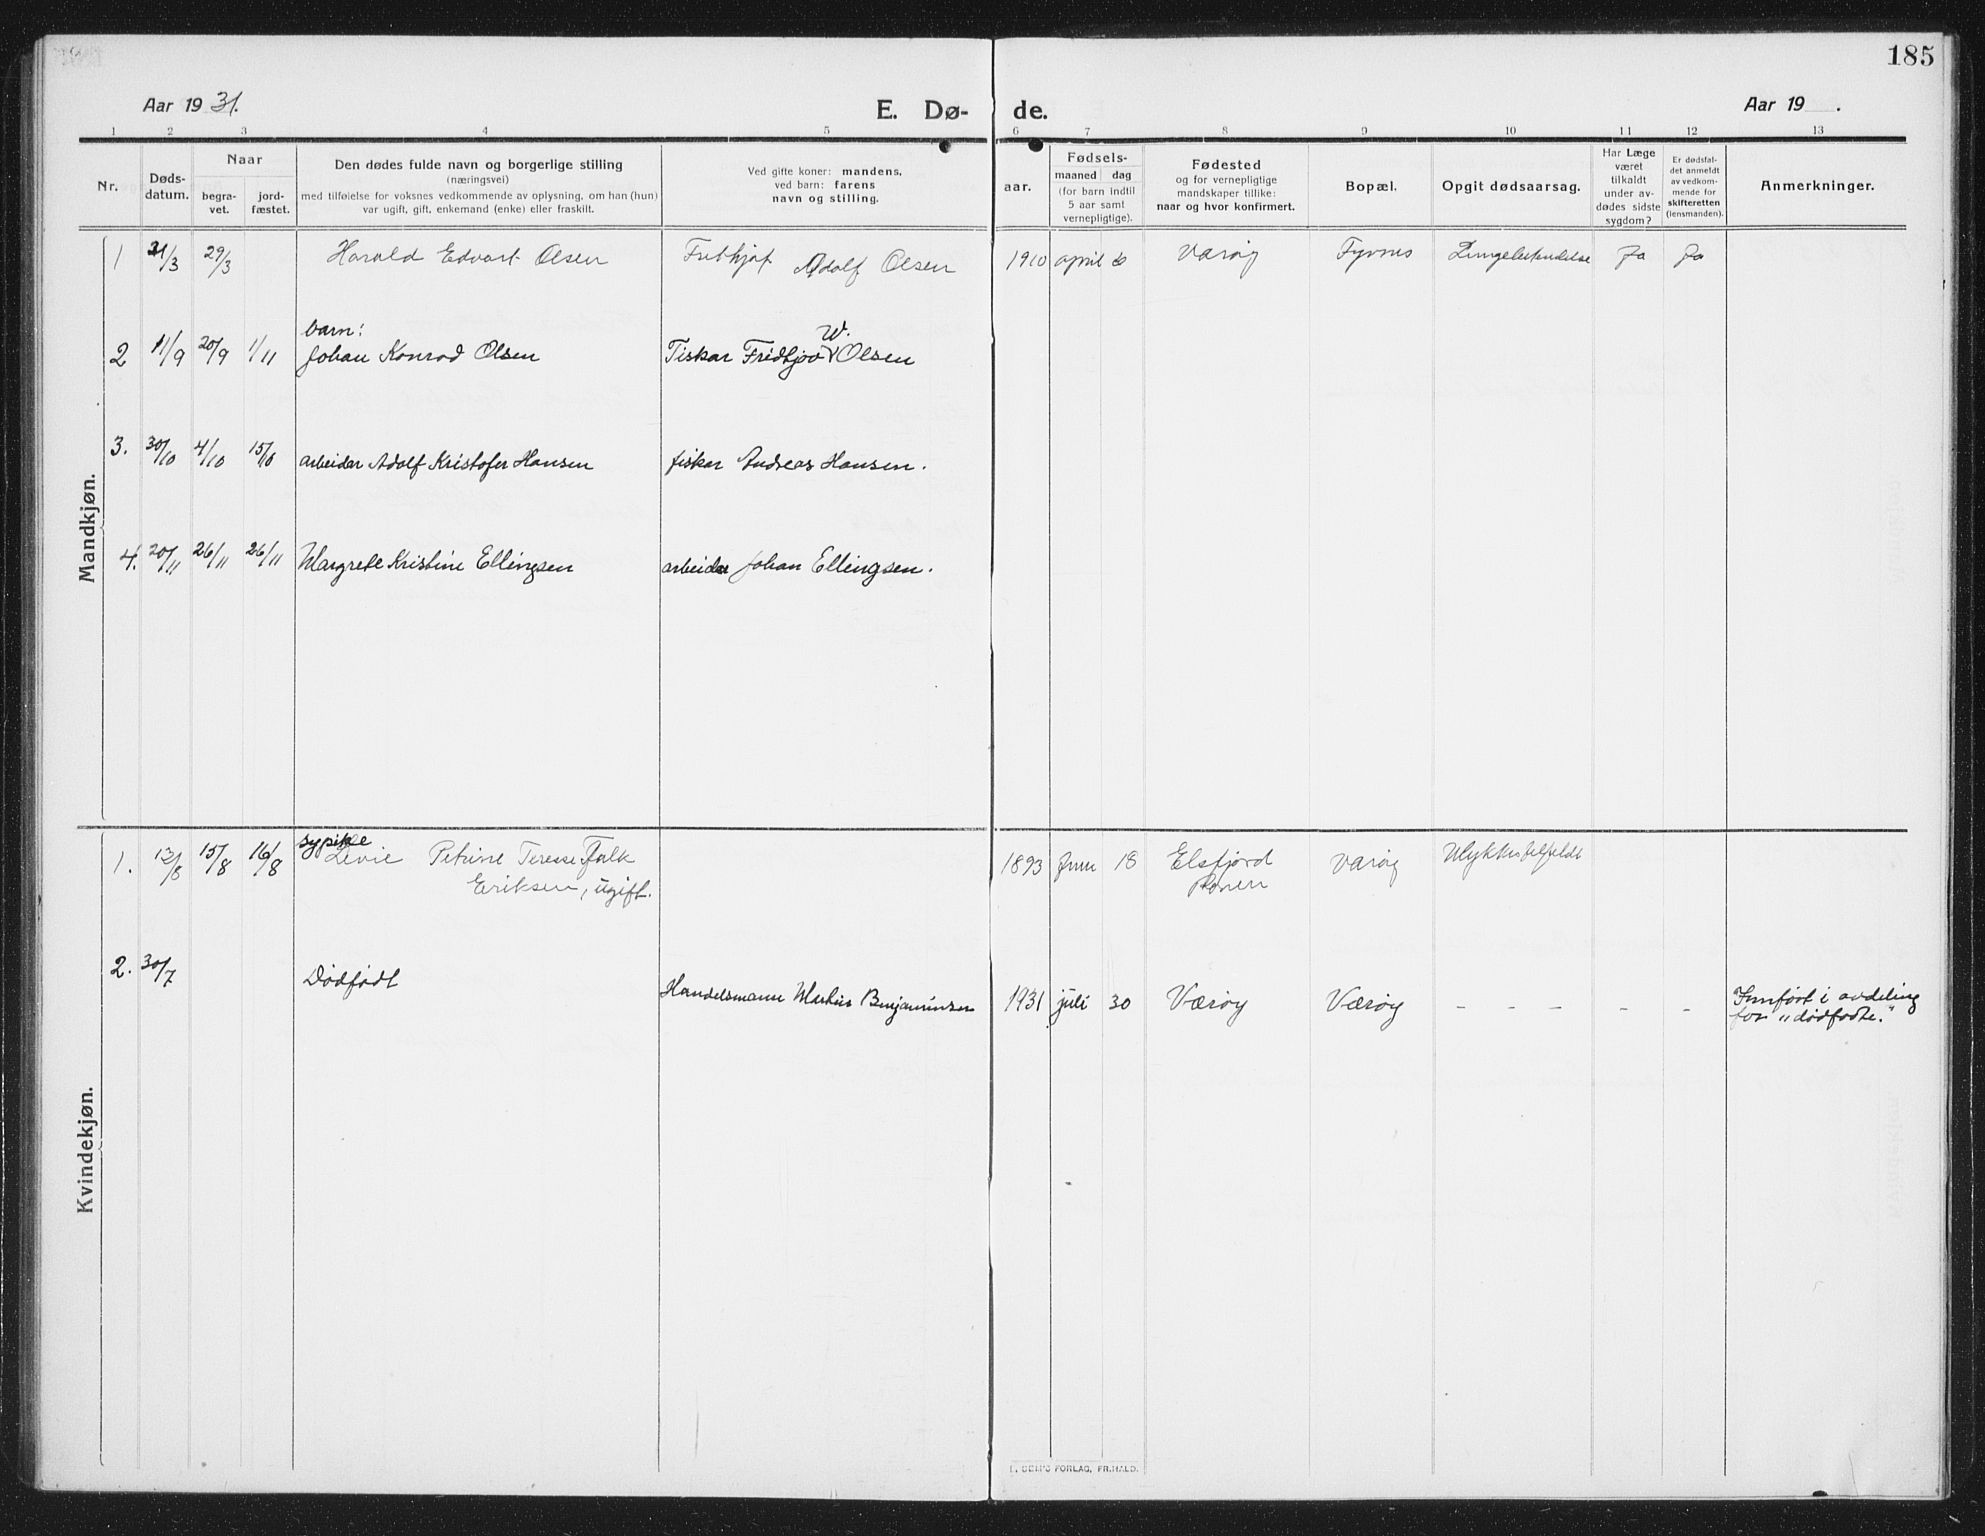 185
Aar 19 31.
E. Dø- de.
Aar 19 .
1 2 3 4 5 6 7 8 9 10 11 12 13
Nr.
Døds-
datum.
Naar
begra-
vet.
jord-
fæstet.
Den dødes fulde navn og borgerlige stilling
(næringsvei)
med tilføielse for voksnes vedkommende av oplysning, om han (hun)
var ugift, gift, enkemand (enke) eller fraskilt.
Ved gifte koner: mandens,
ved barn: farens
navn og stilling.
aar.
Fødsels-
maaned dag
(for barn indtil
5 aar samt
vernepligtige).
Fødested
og for vernepligtige
mandskaper tillike:
naar og hvor konfirmert.
Bopæl.
Opgit dødsaarsag.
Har Læge
været
tilkaldt
under av-
dødes sidste
sygdom?
Er dødsfal-
det anmeldt
av vedkom-
mende for
skifteretten
(lensmanden).
Anmerkninger.
Mandkjøn.
1 21/3 29/3 Harald Edvart Olsen Adolf Olsen 1910 april 6 Værøy Ja Ja
barn: W.
2 11/9 20/9 1/11 Johan Konrad Olsen Fiskar Fridtjov Olsen
3. 30/10 4/10 15/10 arbeidar Adolf Kristofer Hansen fiskar Andreas Hansen.
4. 20/11 26/11 26/11 Margrete Kristine Ellingsen arbeidar Johan Ellingsen.
Kvindekjøn.
sypike
1. 12/8 15/8 16/8 Petrine Terese Falk 1893 Juni 18 Elsfjord Værøy
Eriksen, ugift. Ranen
2. 30/7 Dødfødt
Handelsmann Markus Benjaminsen 1931 juli 30 Værøy Værøy - - - - - Innført i avdeling
for "dødfødte."
FORLAG, FR.HALD.